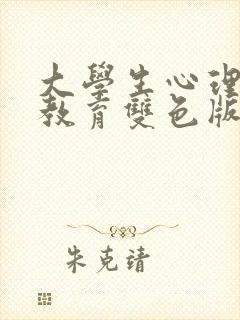 大學生心理
教育雙色版
朱克靖